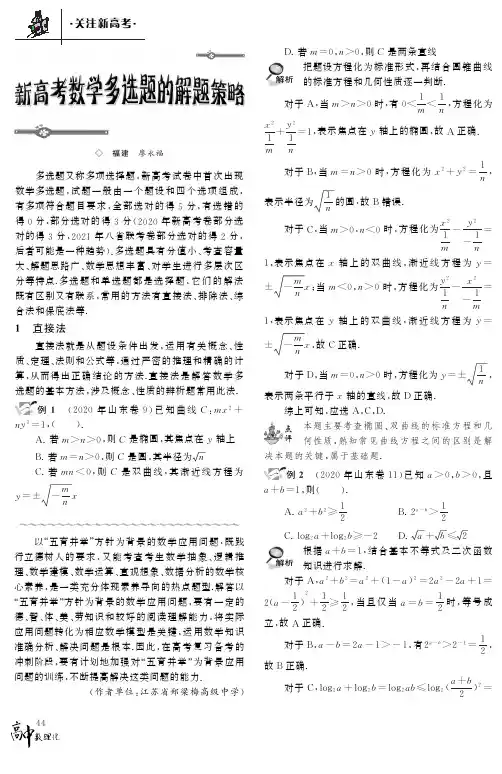 ·关注新高考·
新高考数学多选题的解题策略
◇ 福建 廖永福
多选题又称多项选择题,新高考试卷中首次出现
数学多选题,试题一般由一个题设和四个选项组成,
有多项符合题目要求,全部选对的得 5 分,有选错的
得 0 分,部分选对的得 3 分(2020 年新高考卷部分选
对的得 3 分,2021 年八省联考卷部分选对的得 2 分,
后者可能是一种趋势).多选题具有分值小、考查容量
大、解题思路广、数学思想丰富、对学生进行多层次区
分等特点.多选题和单选题都是选择题,它们的解法
既有区别又有联系,常用的方法有直接法、排除法、综
合法和保底法等.
1 直接法
直接法就是从题设条件出发,运用有关概念、性
质、定理、法则和公式等,通过严密的推理和精确的计
算,从而得出正确结论的方法.直接法是解答数学多
选题的基本方法,涉及概念、性质的辨析题常用此法.
例 1 (2020 年山东卷 9)已知曲线 C:mx²+
ny²=1,( ).
A. 若 m>n>0,则 C 是椭圆,其焦点在 y 轴上
B. 若 m=n>0,则 C 是圆,其半径为√n
C. 若 mn<0,则 C 是双曲线,其渐近线方程为
y=±√(-m/n)x
以“五育并举”方针为背景的数学应用问题,既践
行立德树人的要求,又能考查考生数学抽象、逻辑推
理、数学建模、数学运算、直观想象、数据分析的数学核
心素养,是一类充分体现素养导向的热点题型.解答以
“五育并举”方针为背景的数学应用问题,要有一定的
德、智、体、美、劳知识和较好的阅读理解能力,将实际
应用问题转化为相应数学模型是关键,运用数学知识
准确分析、解决问题是根本.因此,在高考复习备考的
冲刺阶段,要有计划地加强对“五育并举”为背景应用
问题的训练,不断提高解决这类问题的能力.
(作者单位:江苏省郑梁梅高级中学)
D. 若 m=0,n>0,则 C 是两条直线
解析 把题设方程化为标准形式,再结合圆锥曲线
的标准方程和几何性质逐一判断.
对于 A,当 m>n>0 时,有 0<1/m<1/n,方程化为
x²/(1/m)+y²/(1/n)=1,表示焦点在 y 轴上的椭圆,故 A 正确.
对于 B,当 m=n>0 时,方程化为 x²+y²=1/n,
表示半径为√(1/n)的圆,故 B 错误.
对于 C,当 m>0,n<0 时,方程化为x²/(1/m)-y²/(-1/n)=
1,表示焦点在 x 轴上的双曲线,渐近线方程为 y=
±√(-m/n)x;当 m<0,n>0 时,方程化为y²/(1/n)-x²/(-1/m)=
1,表示焦点在 y 轴上的双曲线,渐近线方程为 y=
±√(-m/n)x,故 C 正确.
对于 D,当 m=0,n>0 时,方程化为 y=±√(1/n),
表示两条平行于 x 轴的直线,故 D 正确.
综上可知,应选 A,C,D.
点评 本题主要考查椭圆、双曲线的标准方程和几
何性质,熟知常见曲线方程之间的区别是解
决本题的关键,属于基础题.
例 2 (2020 年山东卷 11)已知 a>0,b>0,且
a+b=1,则( ).
A. a²+b²≥1/2 B. 2ᵃ⁻ᵇ>1/2
C. log₂a+log₂b≥-2 D. √a+√b≤√2
解析 根据 a+b=1,结合基本不等式及二次函数
知识进行求解.
对于 A,a²+b²=a²+(1-a)²=2a²-2a+1=
2(a-1/2)²+1/2≥1/2,当且仅当 a=b=1/2时,等号成
立,故 A 正确.
对于 B,a-b=2a-1>-1,有2ᵃ⁻ᵇ>2⁻¹=1/2,
故 B 正确.
对于 C,log₂a+log₂b=log₂ab≤log₂(a+b/2)²=
44
高中数理化